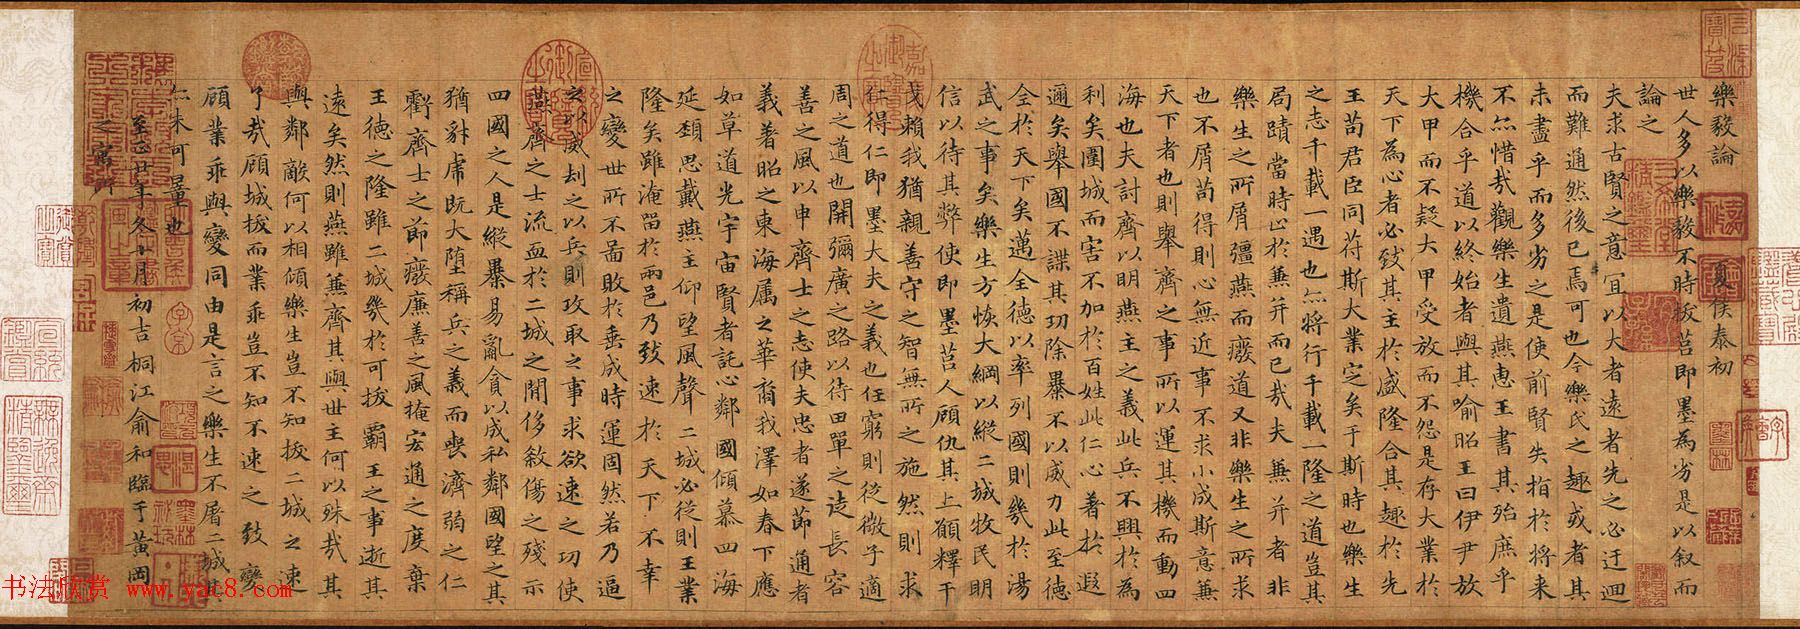 樂毅論 夏侯泰初
世人多以樂毅不時拔莒即墨為劣是以叙而
論之
夫求古賢之意宜以大者遠者先之必迂迴
而難通然後已焉可也今樂氏之趣或者其
未盡乎而多劣之是使前賢失指於將来
不亦惜哉觀樂生遺燕惠王書其殆庶乎
機合乎道以終始者與其喻昭王曰伊尹放
大甲而不疑大甲受放而不怨是存大業於
天下為心者必致其主於盛隆合其趣於先
王苟君臣同苻斯大業定矣于斯時也樂生
之志千載一遇也亦將行千載一隆之道豈其
局蹟當時止於兼并而已哉夫兼并者非
樂生之所屑彊燕而癈道又非樂生之所求
也不屑苟得則心無近事不求小成斯意兼
天下者也則舉齊之事所以運其機而動四
海也夫討齊以明燕主之義此兵不興於為
利矣圍城而害不加於百姓此仁心著於遐
邇矣舉國不謀其功除暴不以威力此至德
全於天下矣邁全德以率列國則幾於湯
武之事矣樂生方恢大綱以縱二城牧民明
信以待其弊使即墨莒人顧仇其上願釋干
戈賴我猶親善守之智無所之施然則求
仁得仁即墨大夫之義也任窮則從微子適
周之道也開彌廣之路以待田單之徒長容
善之風以申齊士之志使夫忠者遂節通者
義著昭之東海属之華裔我澤如春下應
如草道光宇宙賢者託心鄰國傾慕四海
延頸思戴燕主仰望風聲二城必從則王業
隆矣雖淹留於兩邑乃致速於天下不幸
之變世所不啚敗於垂成時運固然若乃逼
之以威刧之以兵則攻取之事求欲速之功使
燕齊之士流血於二城之閒侈敘傷之殘示
四國之人是縱暴易亂貪以成私鄰國望之其
猶豺虎既大墮稱兵之義而喪濟弱之仁
虧齊士之節癈廉善之風掩宏通之度棄
王德之隆雖二城幾於可拔霸王之事逝其
遠矣然則燕雖兼齊其與世主何以殊哉其
與鄰敵何以相傾樂生豈不知拔二城之速
了哉顧城拔而業乖豈不知不速之致變
顧業乖與變同由是言之樂生不屠二城其
亦未可量也
至正廿年冬十月初吉桐江俞和臨于黃岡
之寓所
书法欣赏 www.yac8.com